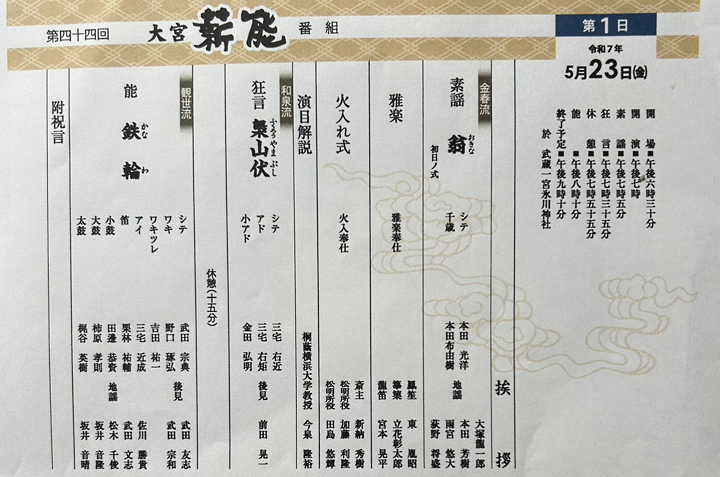 第四十四回 大宮薪能 番組
第1日
令和7年
5月23日(金)
開場■午後六時三十分
開演■午後七時
素謡■午後七時五分
狂言■午後七時三十五分
休憩■午後七時五十五分
能■午後八時十分
終了予定■午後九時十分
於 武蔵一宮氷川神社
挨拶
金春流
素謡 翁 おきな 初日ノ式
シテ 本田 光洋
千歳 本田布由樹
地謡 大塚龍一郎
本田 芳樹
雨宮 悠大
荻野 将盛
雅楽
雅楽奉仕
鳳笙 東 胤昭
篳篥 立花彰太郎
龍笛 宮本 晃平
火入れ式
火入奉仕
斎主 新納 秀樹
松明所役 加藤 利隆
松明所役 田島 悠輝
演目解説
桐蔭横浜大学教授 今泉 隆裕
和泉流
狂言 梟山伏 ふくろうやまぶし
シテ 三宅 右近
アド 三宅 右矩
小アド 金田 弘明
後見 前田 晃一
休憩(十五分)
観世流
能 鉄輪 かなわ
シテ 武田 宗典
ワキ 野口 琢弘
ワキツレ 吉田 祐一
アイ 三宅 近成
笛 栗林 祐輔
小鼓 田邊 恭資
大鼓 柿原 孝則
太鼓 梶谷 英樹
後見 武田 友志
武田 宗和
地謡 佐川 勝貴
武田 文志
松木 千俊
坂井 音隆
坂井 音晴
附祝言